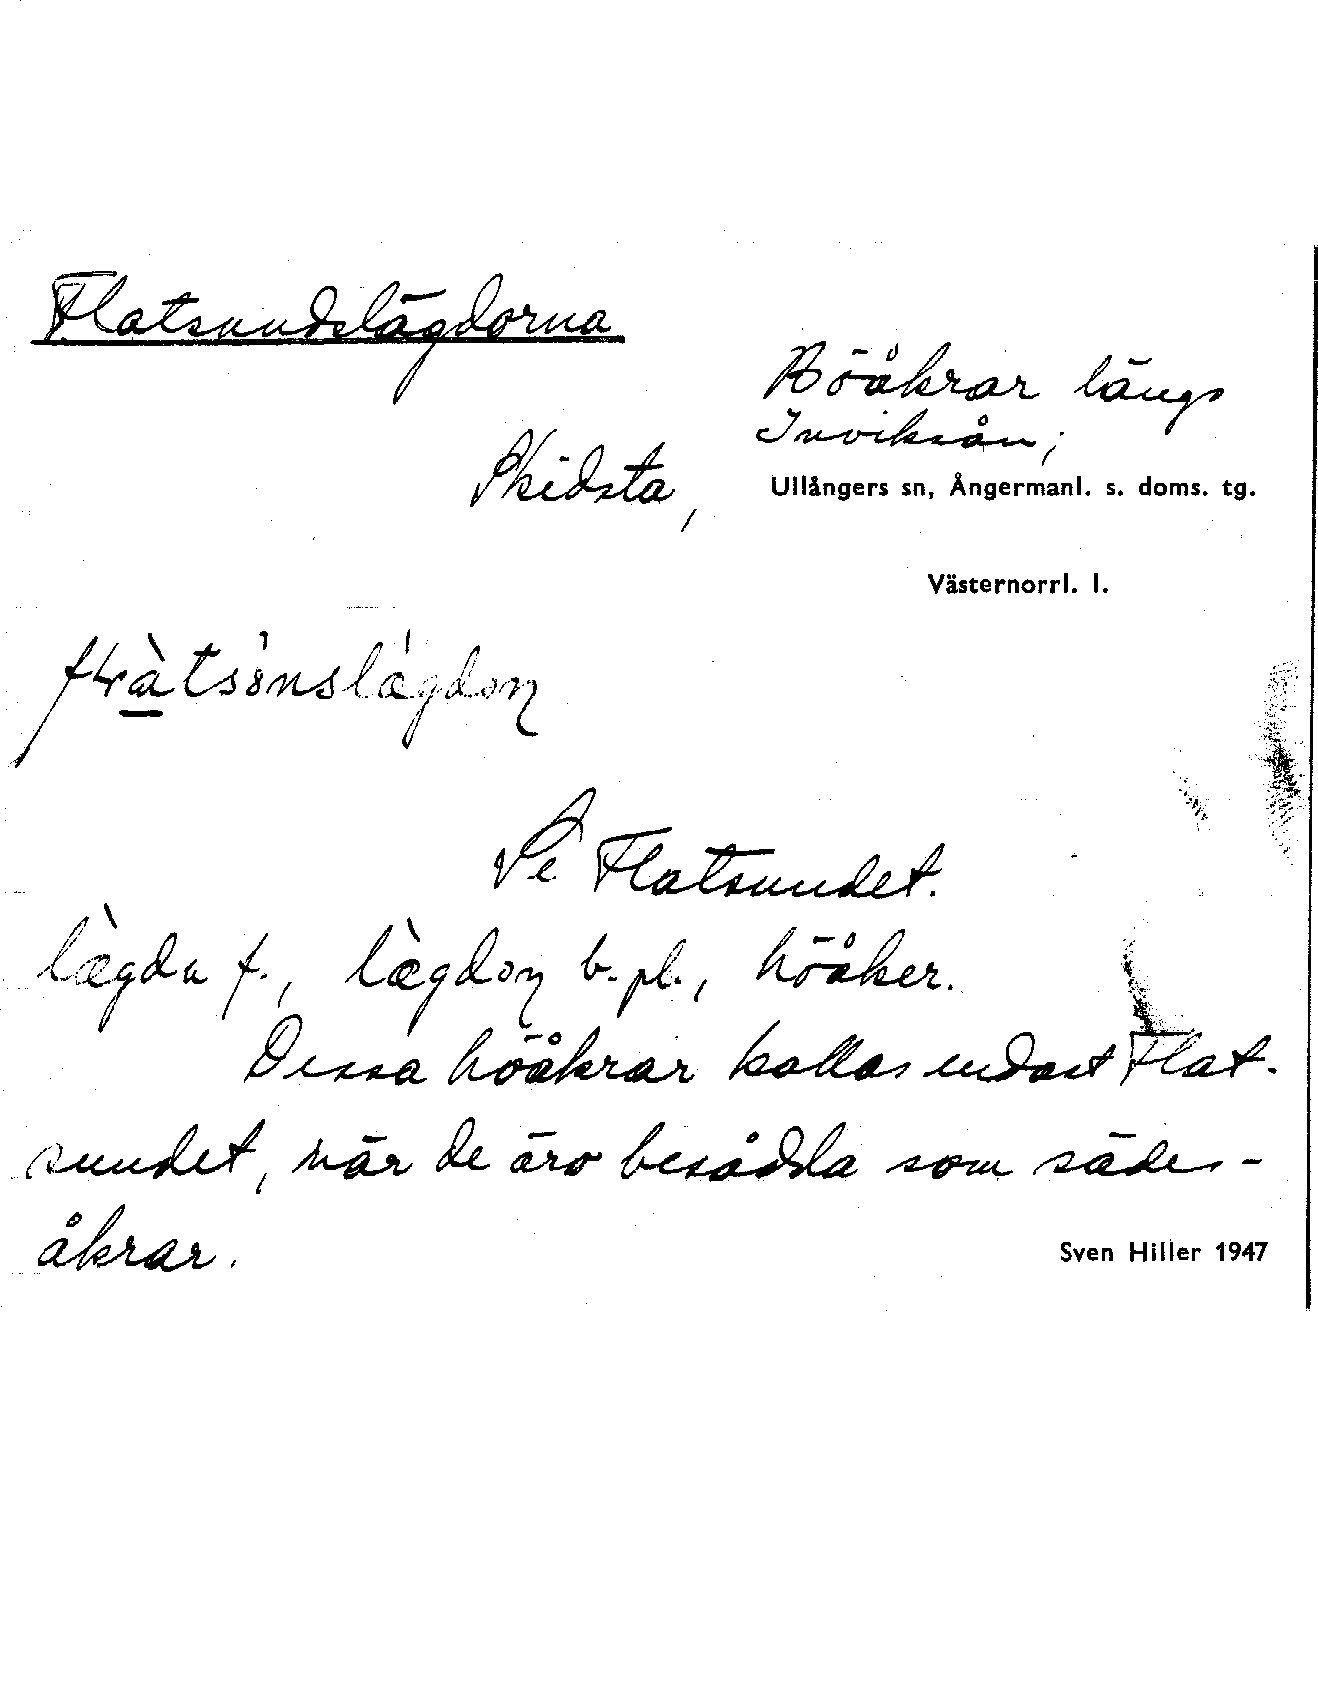 Flatsundslägdorna
Höåkrar längs
Inviksån;
Skidsta,
Ullångers sn, Ångermanl. s. doms. tg.
Västernorrl. l.
Se Flatsundet.
f., b. pl., höåker.
Dessa höåkrar kallas endast Flat-
sundet, när de äro besådda som sädes-
åkrar.
Sven Hiller 1947